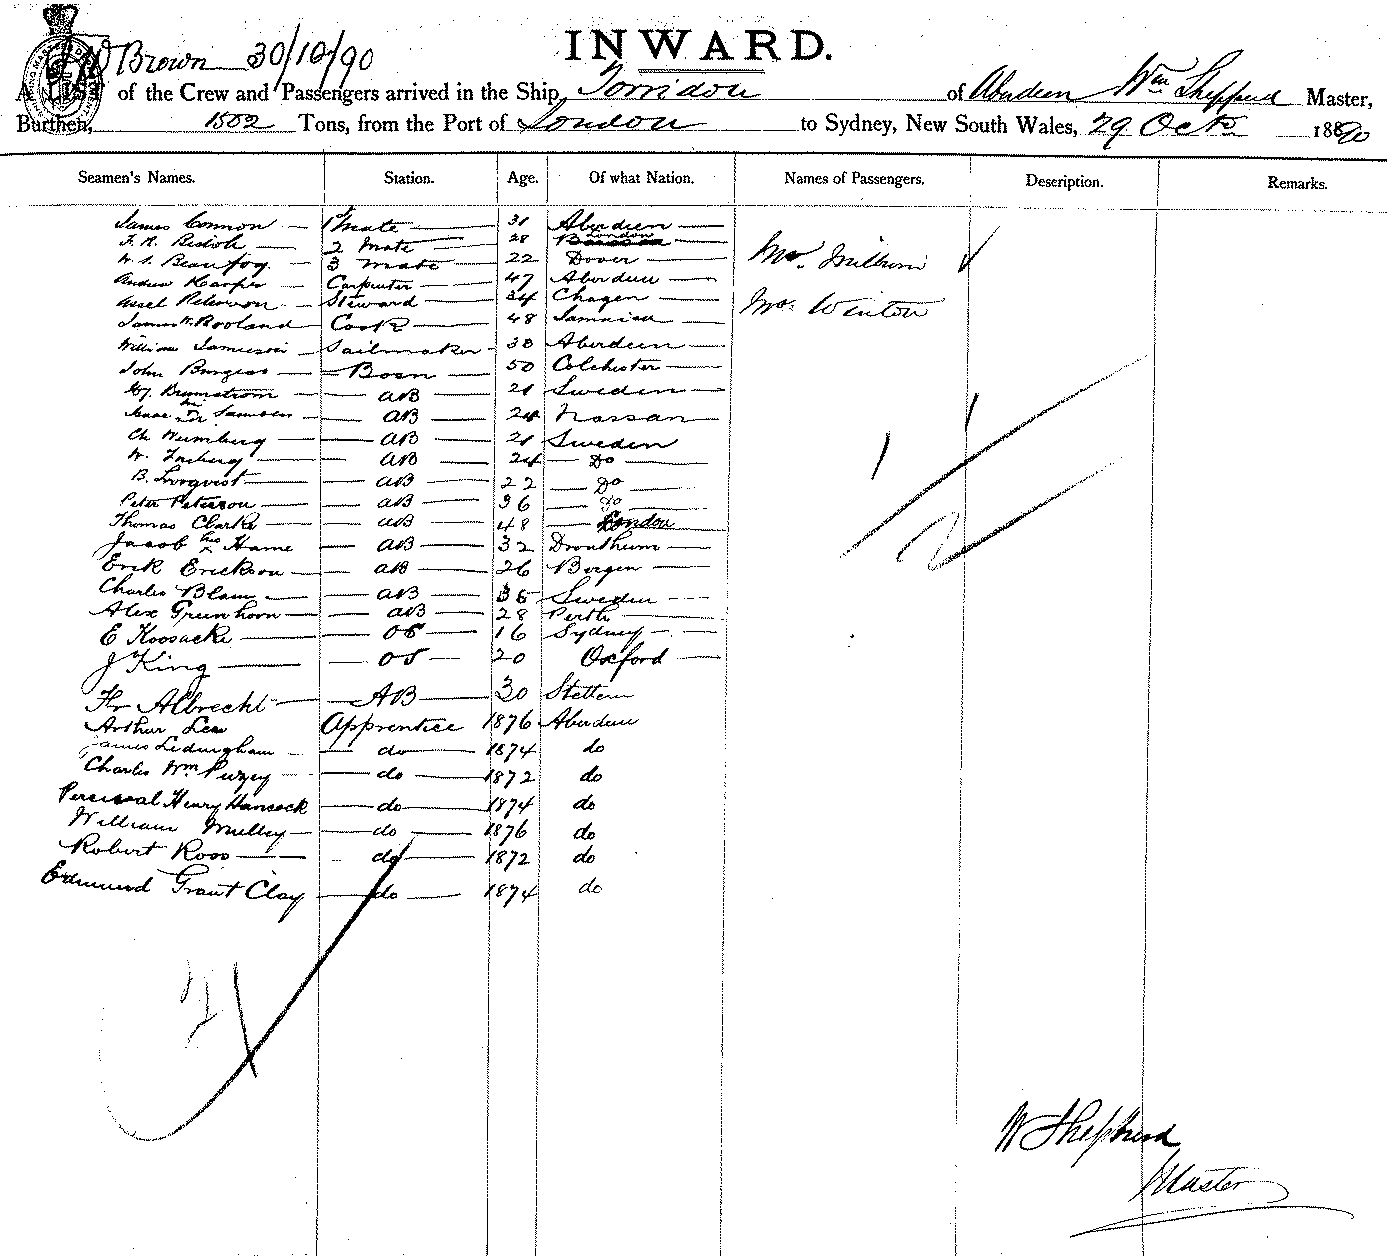 INWARD.
Brown 30/10/90
A LIST of the Crew and Passengers arrived in the Ship Torridon of Aberdeen Wm Shepherd Master,
Burthen, 1502 Tons, from the Port of London to Sydney, New South Wales, 29 Oct 1890
Seamen's Names. Station. Age. Of what Nation. Names of Passengers. Description. Remarks.
James Connon 1st Mate 31 Aberdeen
2 Mate 28 London
W. S. Beaufoy 3 Mate 22 Dover Mr. Milburn
Andrew Harper Carpenter 47 Aberdeen
Steward 34 Mr. Winton
Cook 48 Jamaica
William Jamieson Sailmaker 38 Aberdeen
John Burgess Bosn 50 Colchester
AB 21 Sweden
Isaac AB 24 Nassau
AB 21 Sweden
AB 24 Do
AB 22 Do
Peter Peterson AB 36 Do
Thomas Clarke AB 48 London
Jacob his x Hame AB 32 Drontheim
Erik Erickson AB 26 Bergen
Charles AB Sweden
Alex Greenhorn AB 28 Perth
E OS 16 Sydney
J King OS 20 Oxford
Fr Albrecht AB 30 Stettin
Arthur Lea Apprentice 1876 Aberdeen
James Ledingham do 1874 do
Charles Wm Puzey do 1872 do
Percival Henry Hancock do 1874 do
William do 1876 do
Robert Ross do 1872 do
Edmund Grant Clay do 1874 do
2
W Shepherd
Master